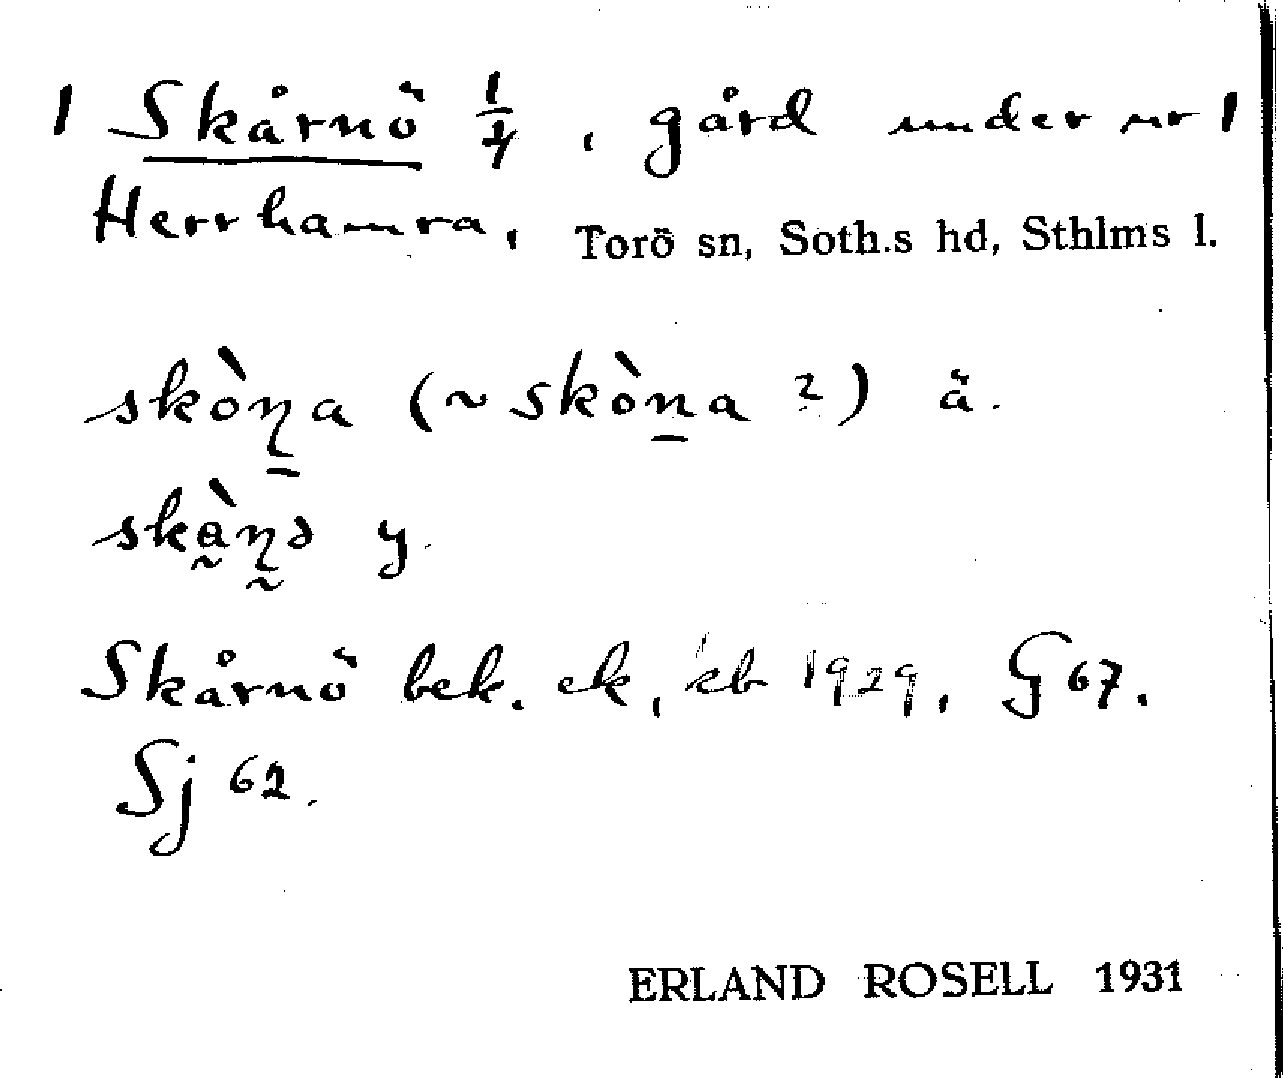 1 Skårnö 1/4, gård under nr 1
Herrhamra, Torö sn, Soth.s hd, Sthlms l.
skòn̲a (~ skòn̲a ?) ä.
skà̰ɳ̰ə y.
Skårnö bek. ek, kb 1929, G 67.
Sj 62.
ERLAND ROSELL 1931